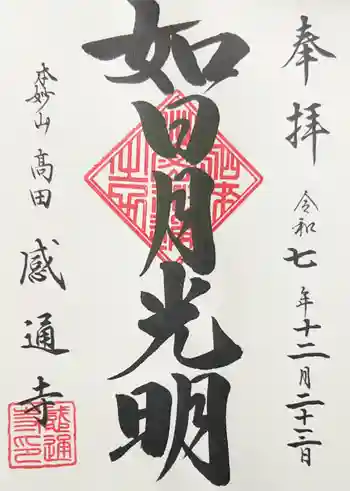 奉拝
令和七年十二月二十三日
如日月光明
本妙山 高田
感通寺